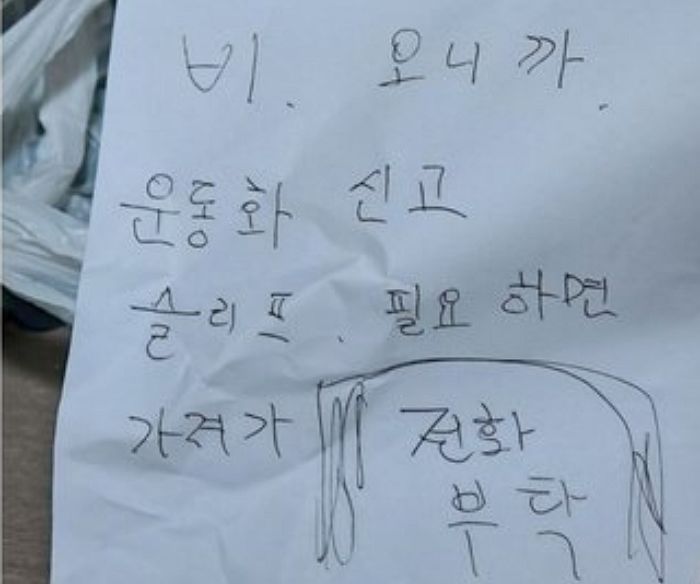 비. 오니까.
운동화 신고
슬리프. 필요하면
가져가 전화
부탁